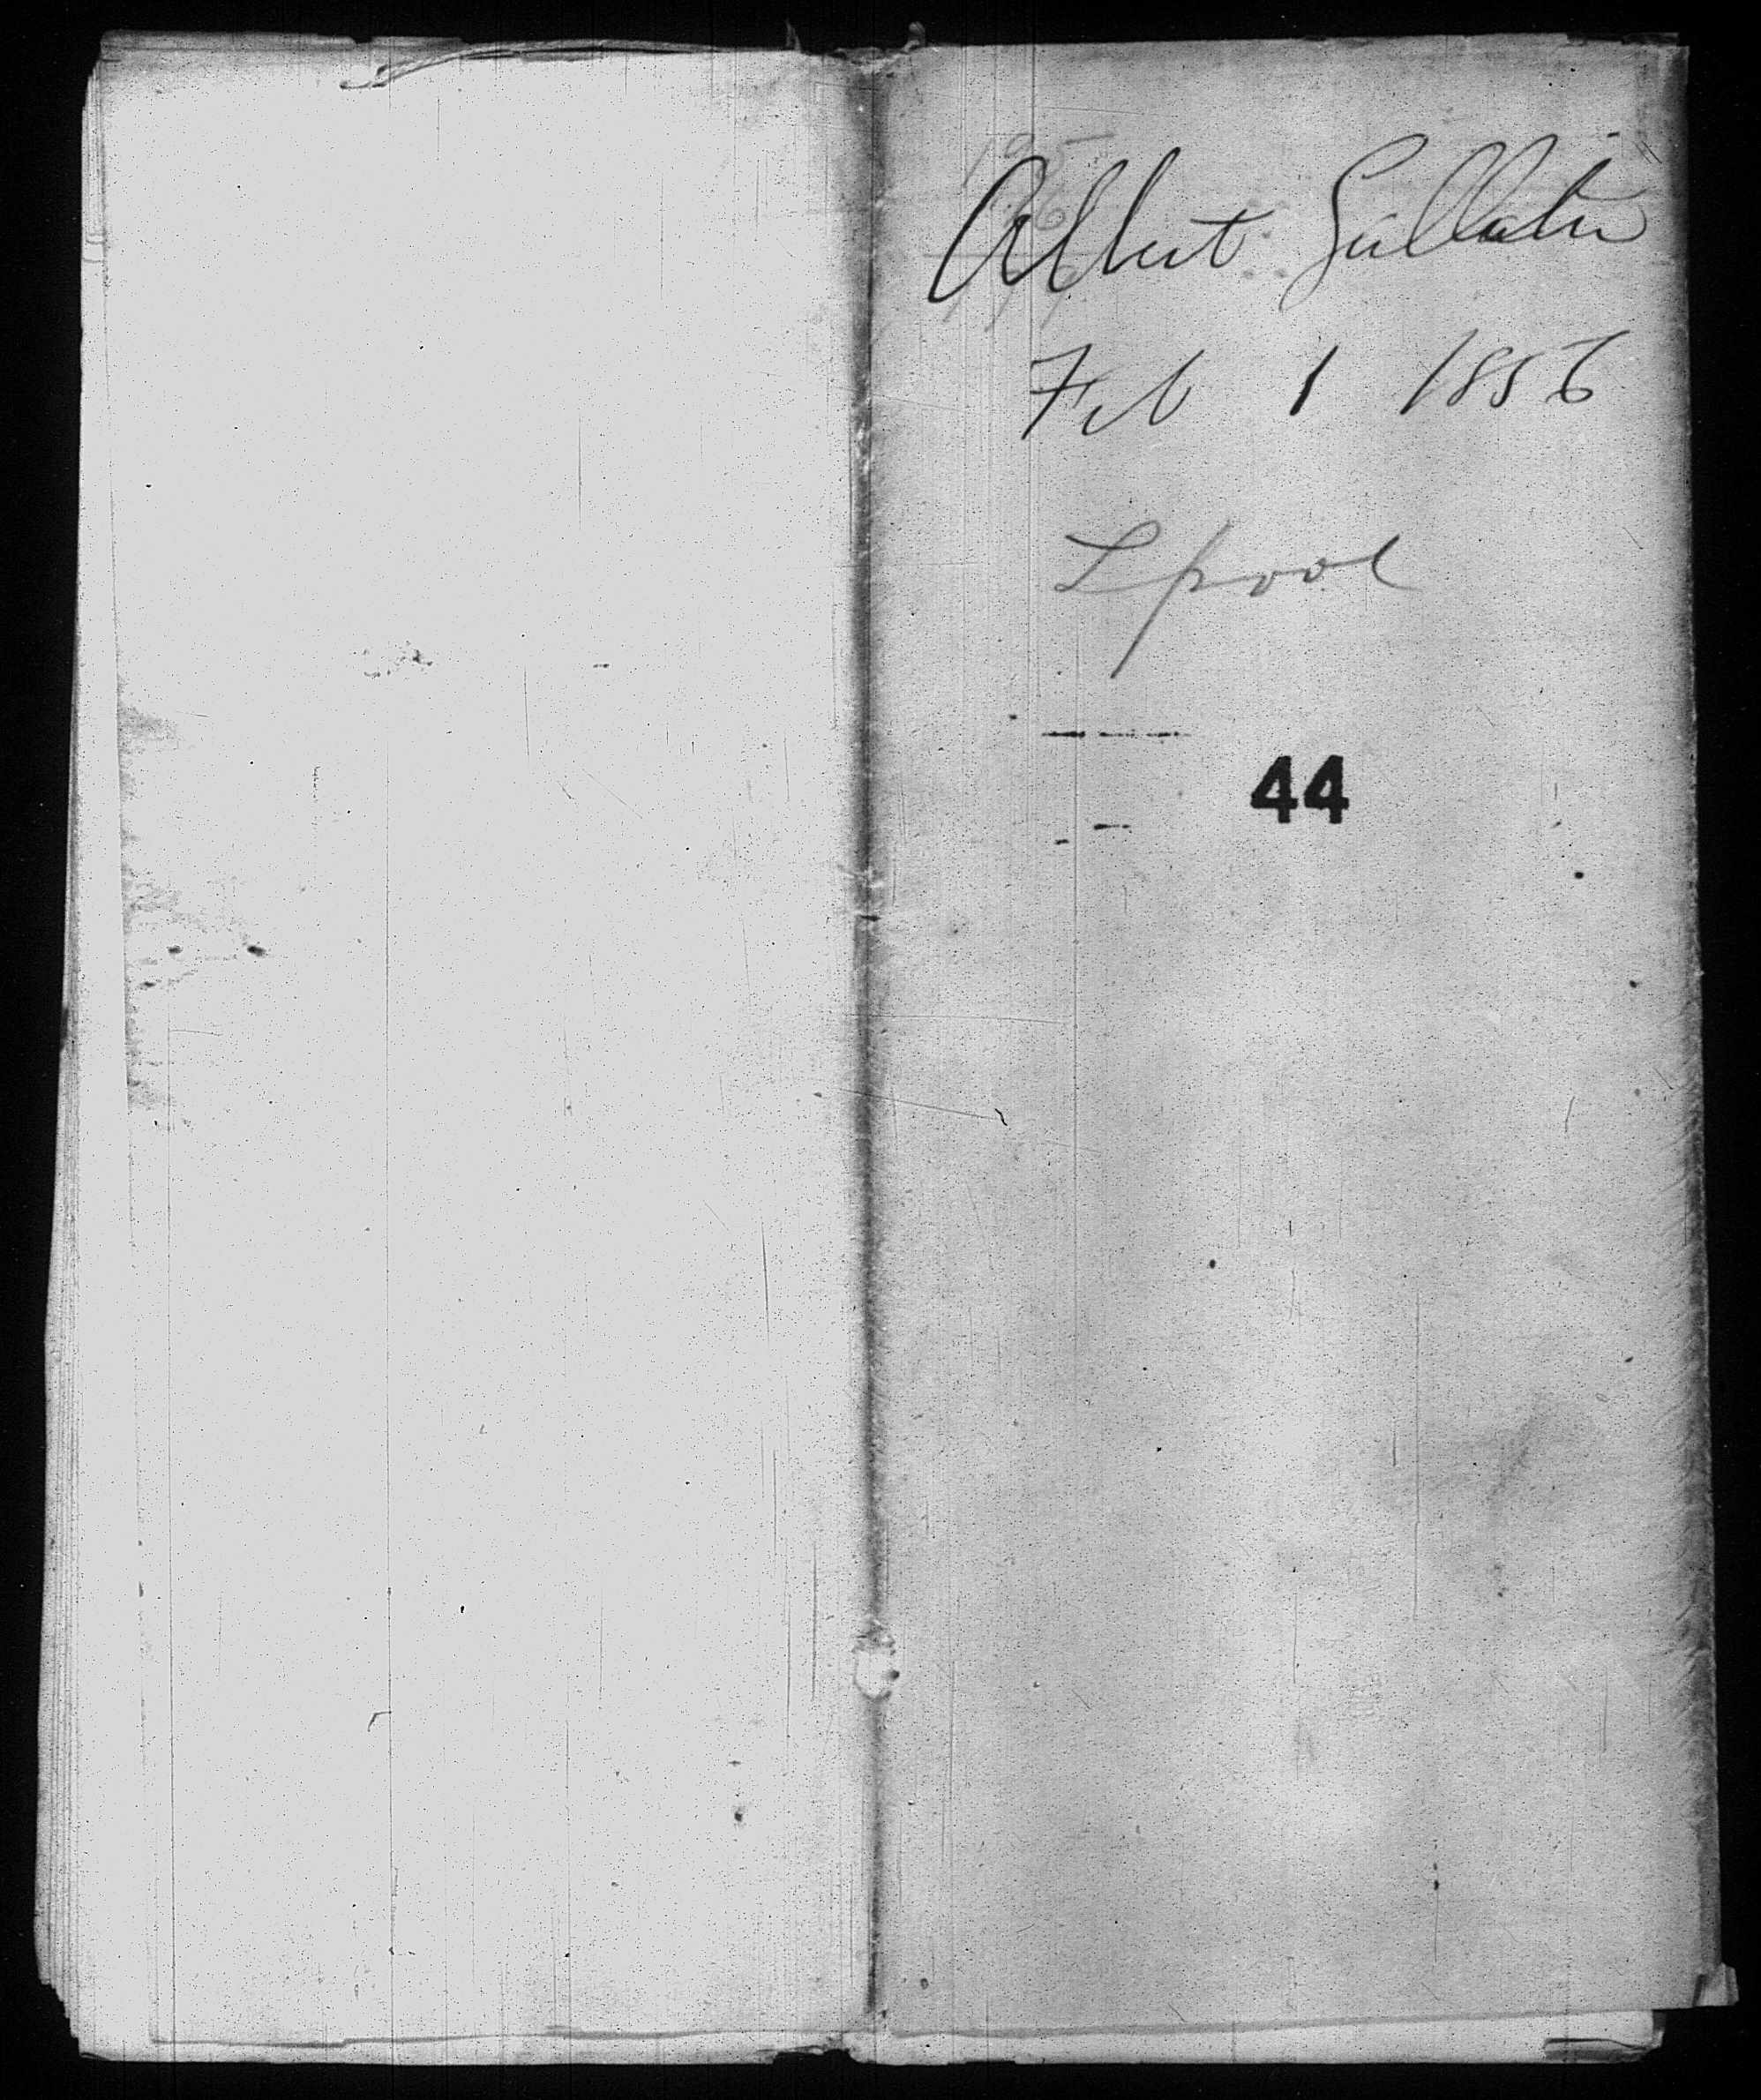 Albert Gallatin
Feb 1 1856
Lpool
44